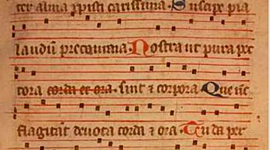 ter alma xpisti carissima Suscipe pia
laudum precamina Nostra ut pura pec
tora corda et ora sint et corpora Que nunc
flagitant devota corda et ora Tu da per